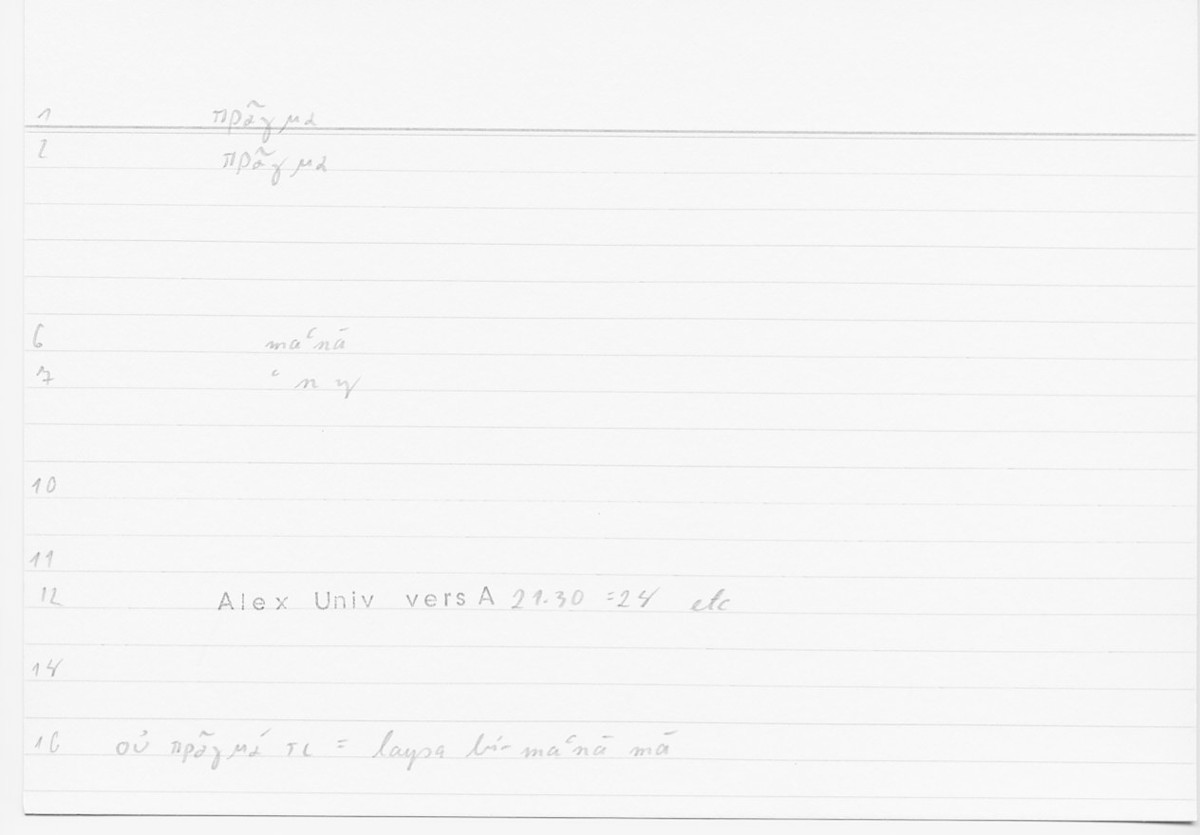 1 πρᾶγμα
2 πρᾶγμα
6 maʿnā
7 ʿ n y
10
11
12 Alex Univ vers A 21.30 = 24 etc
14
16 οὐ πρᾶγμά τι = laysa bi-maʿnā mā